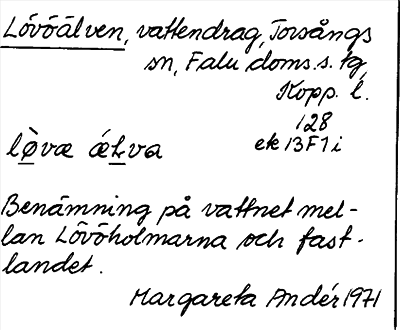 Lövöälven, vattendrag, Torsångs
sn, Falu doms.s. tg,
Kopp. l.
128
ek 13F1i
lø̀væ ǽƚva
Benämning på vattnet mel-
lan Lövöholmarna och fast-
landet.
Margareta Andér 1971